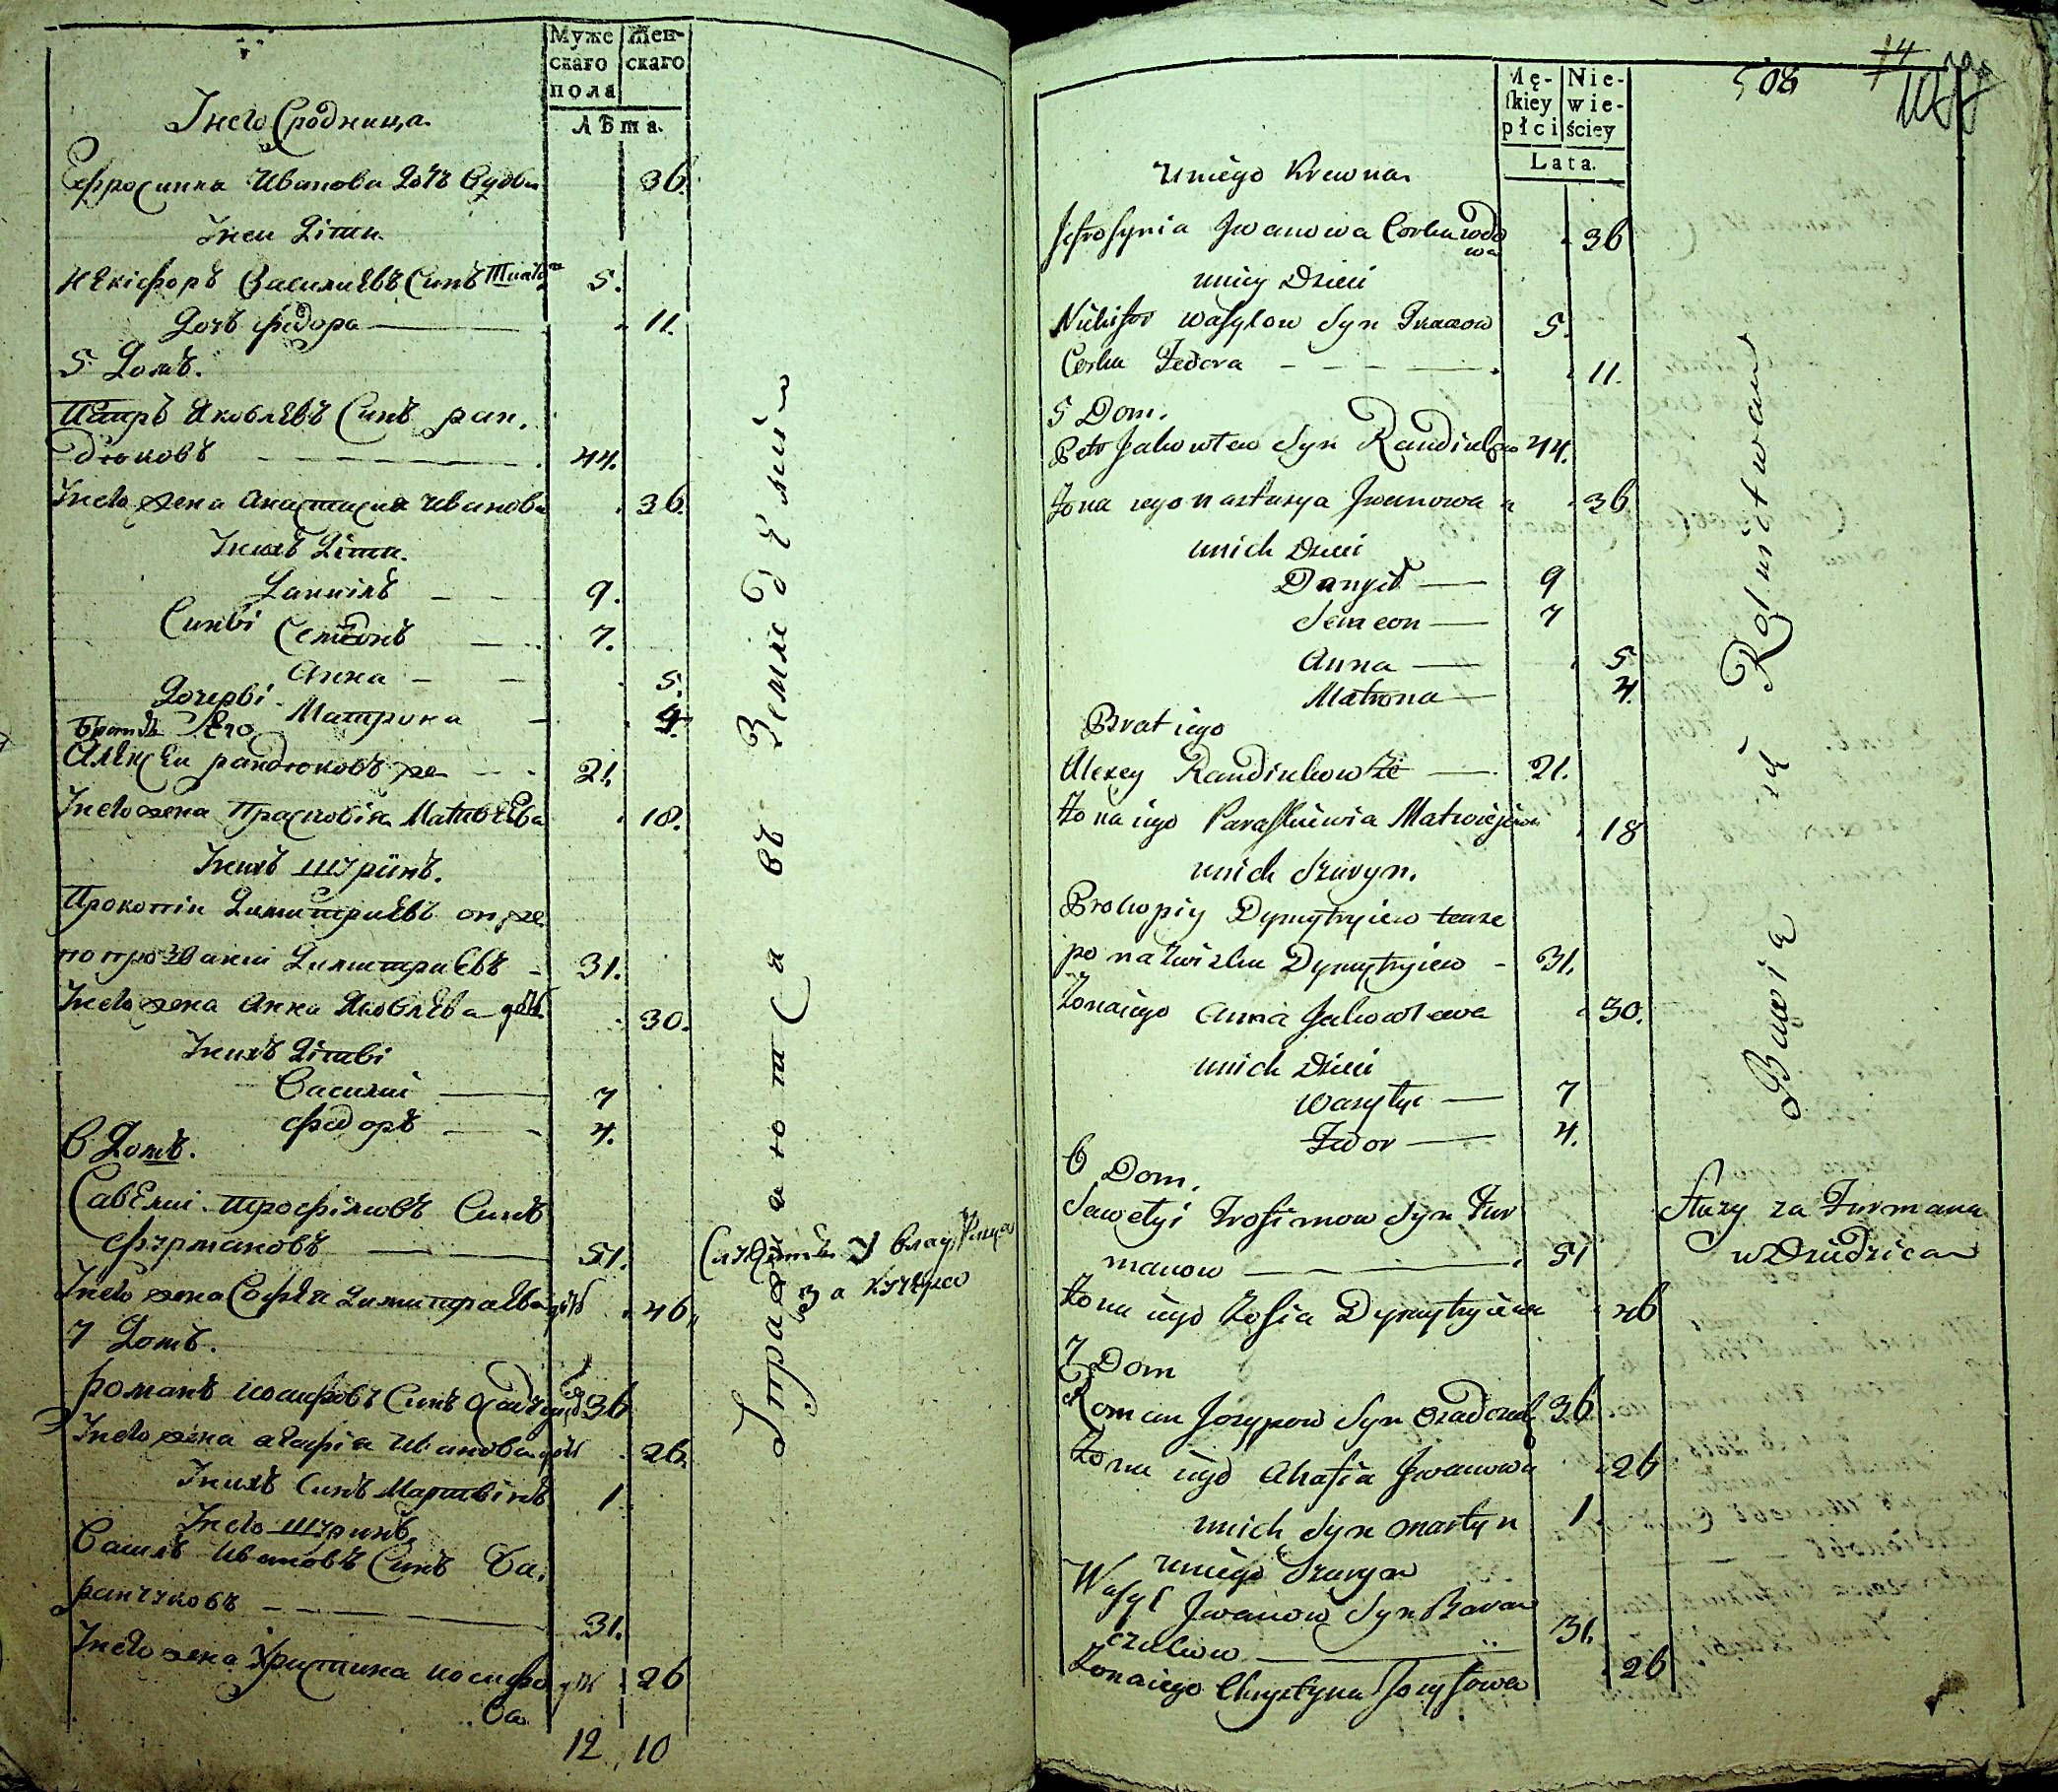 Муже скаго пола
Жен- скаго
Лѣта.
Унего Сродница.
Ефросинка Иванова дочъ вдова 36.
Унеи Дѣти.
Некіфоръ Василиевъ Синъ 5.
Дочъ Федора 11.
5 Домъ.
Петръ Яковлевъ Синъ ран.
дюковъ 44.
Унего жена Анастасия Иванова 36.
Унихъ Дѣти.
Даниілъ 9.
Синви Семионъ 7.
Анна 5.
Дочерви Матрона 4.
Братъ Его
Алексеи рандюковъ же 21.
Унего жена Прасковія Матвѣева 18.
Унихъ шуринъ.
Прокопіи Димитриевъ он же
по прозванию Димитриевъ 31.
Унего жена Анна Яковлева дочъ 30.
Унихъ Дѣтви
Василии 7
Федоръ 4.
6 Домъ.
Савелии Трофимовъ Синъ
фурмановъ 51.
Унего жена Софія Димитриева дочъ 46
7 Домъ.
Романъ иосифовъ Синъ 36
Унего жена агафія Иванова дочъ 26.
Унихъ Синъ Мартинъ 1.
Унего шуринъ
Василь Ивановъ Синъ Ба.
ранчуковъ 31.
Унего жена Христина иосифо дочъ 26
ва
12 10
Упражнаются въ Земледѣлии
за кучера
Mę- skiey płci
Nie- wie- ściey
Lata.
508
Uniego Krewna.
Jefrosynia Jwanowa Corka wdo
wa 36
uniey Dzieci
Nikifor Wasylow Syn 5.
Corka Fedora 11.
5 Dom.
Petr Jakowlew Syn Randiukow 44.
Żona iego Nastazya Jwanowa 36
unich Dzieci
Danyił 9
Semeon 7
Anna 5
Matrona 4.
Brat iego
Alexey Randiukow że 21.
Żona iego Paraskiewia Matwiejewa 18
unich Szuryn.
Prokopiy Dymytryiew tenze
po nazwisku Dymytryiew 31.
Żona iego Anna Jakowlewa 30.
unich Dzieci
Wasyłyi 7
Fedor 4.
6 Dom.
Sawelyi Trofimow Syn Fur
manow 51
Służy za Furmana
w Dziedzica
Żona iego Zofia Dymytryiewa 46
7 Dom
Roman Jozypow Syn 36
Żona iego Ahafia Jwanowa 26
unich Syn Martyn 1.
uniego Szuryn
Wasyl Jwanow Syn Baran
czukow 31.
Żona iego Chrystyna Jozyfowa 26
Bawią się Rolnictwem